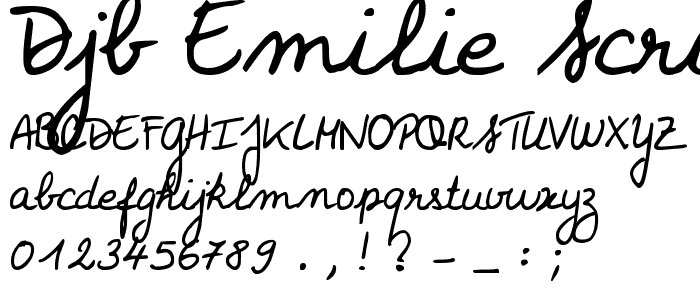 Djb Emilie Scri
ABCDEFGHIJKLMNOPQRSTUVWXYZ
abcdefghijklmnopqrstuvwxyz
0123456789 . , ! ? - _ : ;